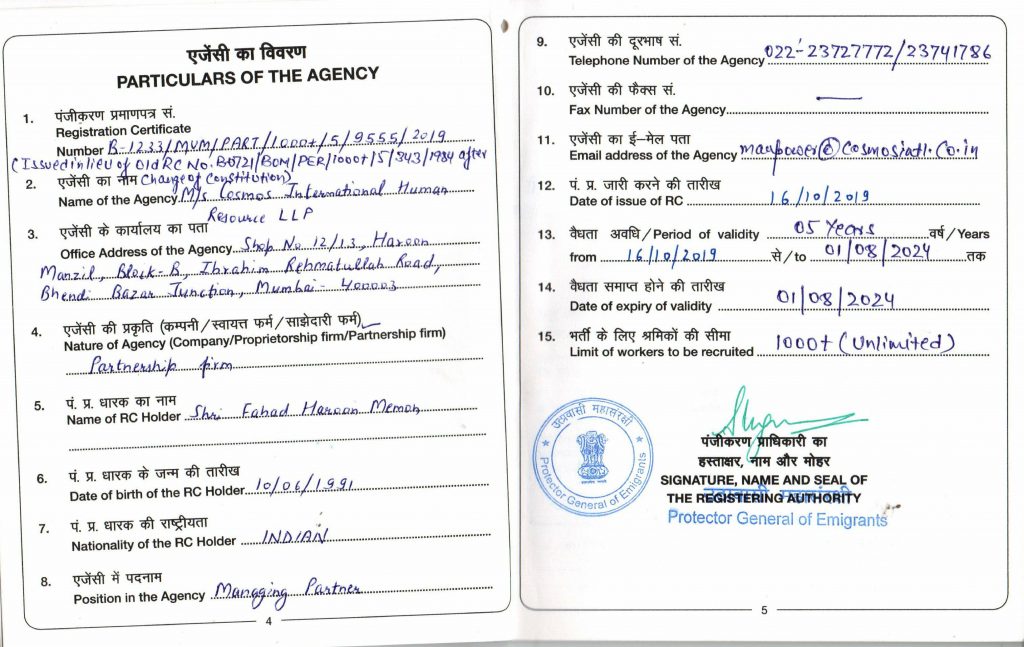 एजेंसी का विवरण
PARTICULARS OF THE AGENCY
1. पंजीकरण प्रमाणपत्र सं.
Registration Certificate
Number B-1233/MUM/PART/1000+/5/9555/2019
(Issued in lieu of Old RC No. B0721/BOM/PER/1000+/5/343/1984 after
2. एजेंसी का नाम Change of Constitution)
Name of the Agency M/s Cosmos International Human
Resource LLP
3. एजेंसी के कार्यालय का पता
Office Address of the Agency Shop No 12/13, Haroon
Manzil, Block-B, Ibrahim Rehmatullah Road,
Bhendi Bazar Junction, Mumbai- 400003
4. एजेंसी की प्रकृति (कम्पनी/स्वायत्त फर्म/साझेदारी फर्म)
Nature of Agency (Company/Proprietorship firm/Partnership firm)
Partnership firm
5. पं. प्र. धारक का नाम
Name of RC Holder Shri Fahad Haroon Memon
6. पं. प्र. धारक के जन्म की तारीख
Date of birth of the RC Holder 10/06/1991
7. पं. प्र. धारक की राष्ट्रीयता
Nationality of the RC Holder INDIAN
8. एजेंसी में पदनाम
Position in the Agency Managging Partner
4
9. एजेंसी की दूरभाष सं.
Telephone Number of the Agency 022-23727772/23741786
10. एजेंसी की फैक्स सं.
Fax Number of the Agency —
11. एजेंसी का ई-मेल पता
Email address of the Agency manpower@cosmosiatl.co.in
12. पं. प्र. जारी करने की तारीख
Date of issue of RC 16/10/2019
13. वैधता अवधि/Period of validity 05 Years वर्ष/Years
from 16/10/2019 से/to 01/08/2024 तक
14. वैधता समाप्त होने की तारीख
Date of expiry of validity 01/08/2024
15. भर्ती के लिए श्रमिकों की सीमा
Limit of workers to be recruited 1000+ (Unlimited)
उत्प्रवासी महासंरक्षी
Protector General of Emigrants
पंजीकरण प्राधिकारी का
हस्ताक्षर, नाम और मोहर
SIGNATURE, NAME AND SEAL OF
THE REGISTERING AUTHORITY
Protector General of Emigrants
5